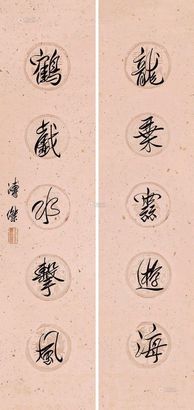 龍乘遊海
鶴戲水擊風
溥傑